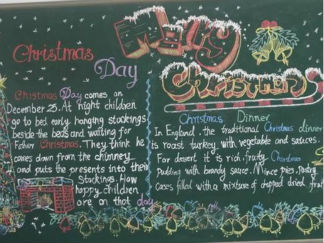 Christmas
Day
Christmas Day comes on
December 25. At night children
go to bed early hanging stockings
beside the beds and waiting for
Father Christmas. They think he
comes down from the chimney
and puts the presents into their
stockings. How
happy children
are on that day
Merry
Christmas
Christmas Dinner
In England, the traditional Christmas dinner
is roast turkey with vegetable and sauces.
For dessert it is rich, fruity Christmas
Pudding with brandy sauce. Mince pies, pastry
cases filled with a mixture of chopped dried fruit